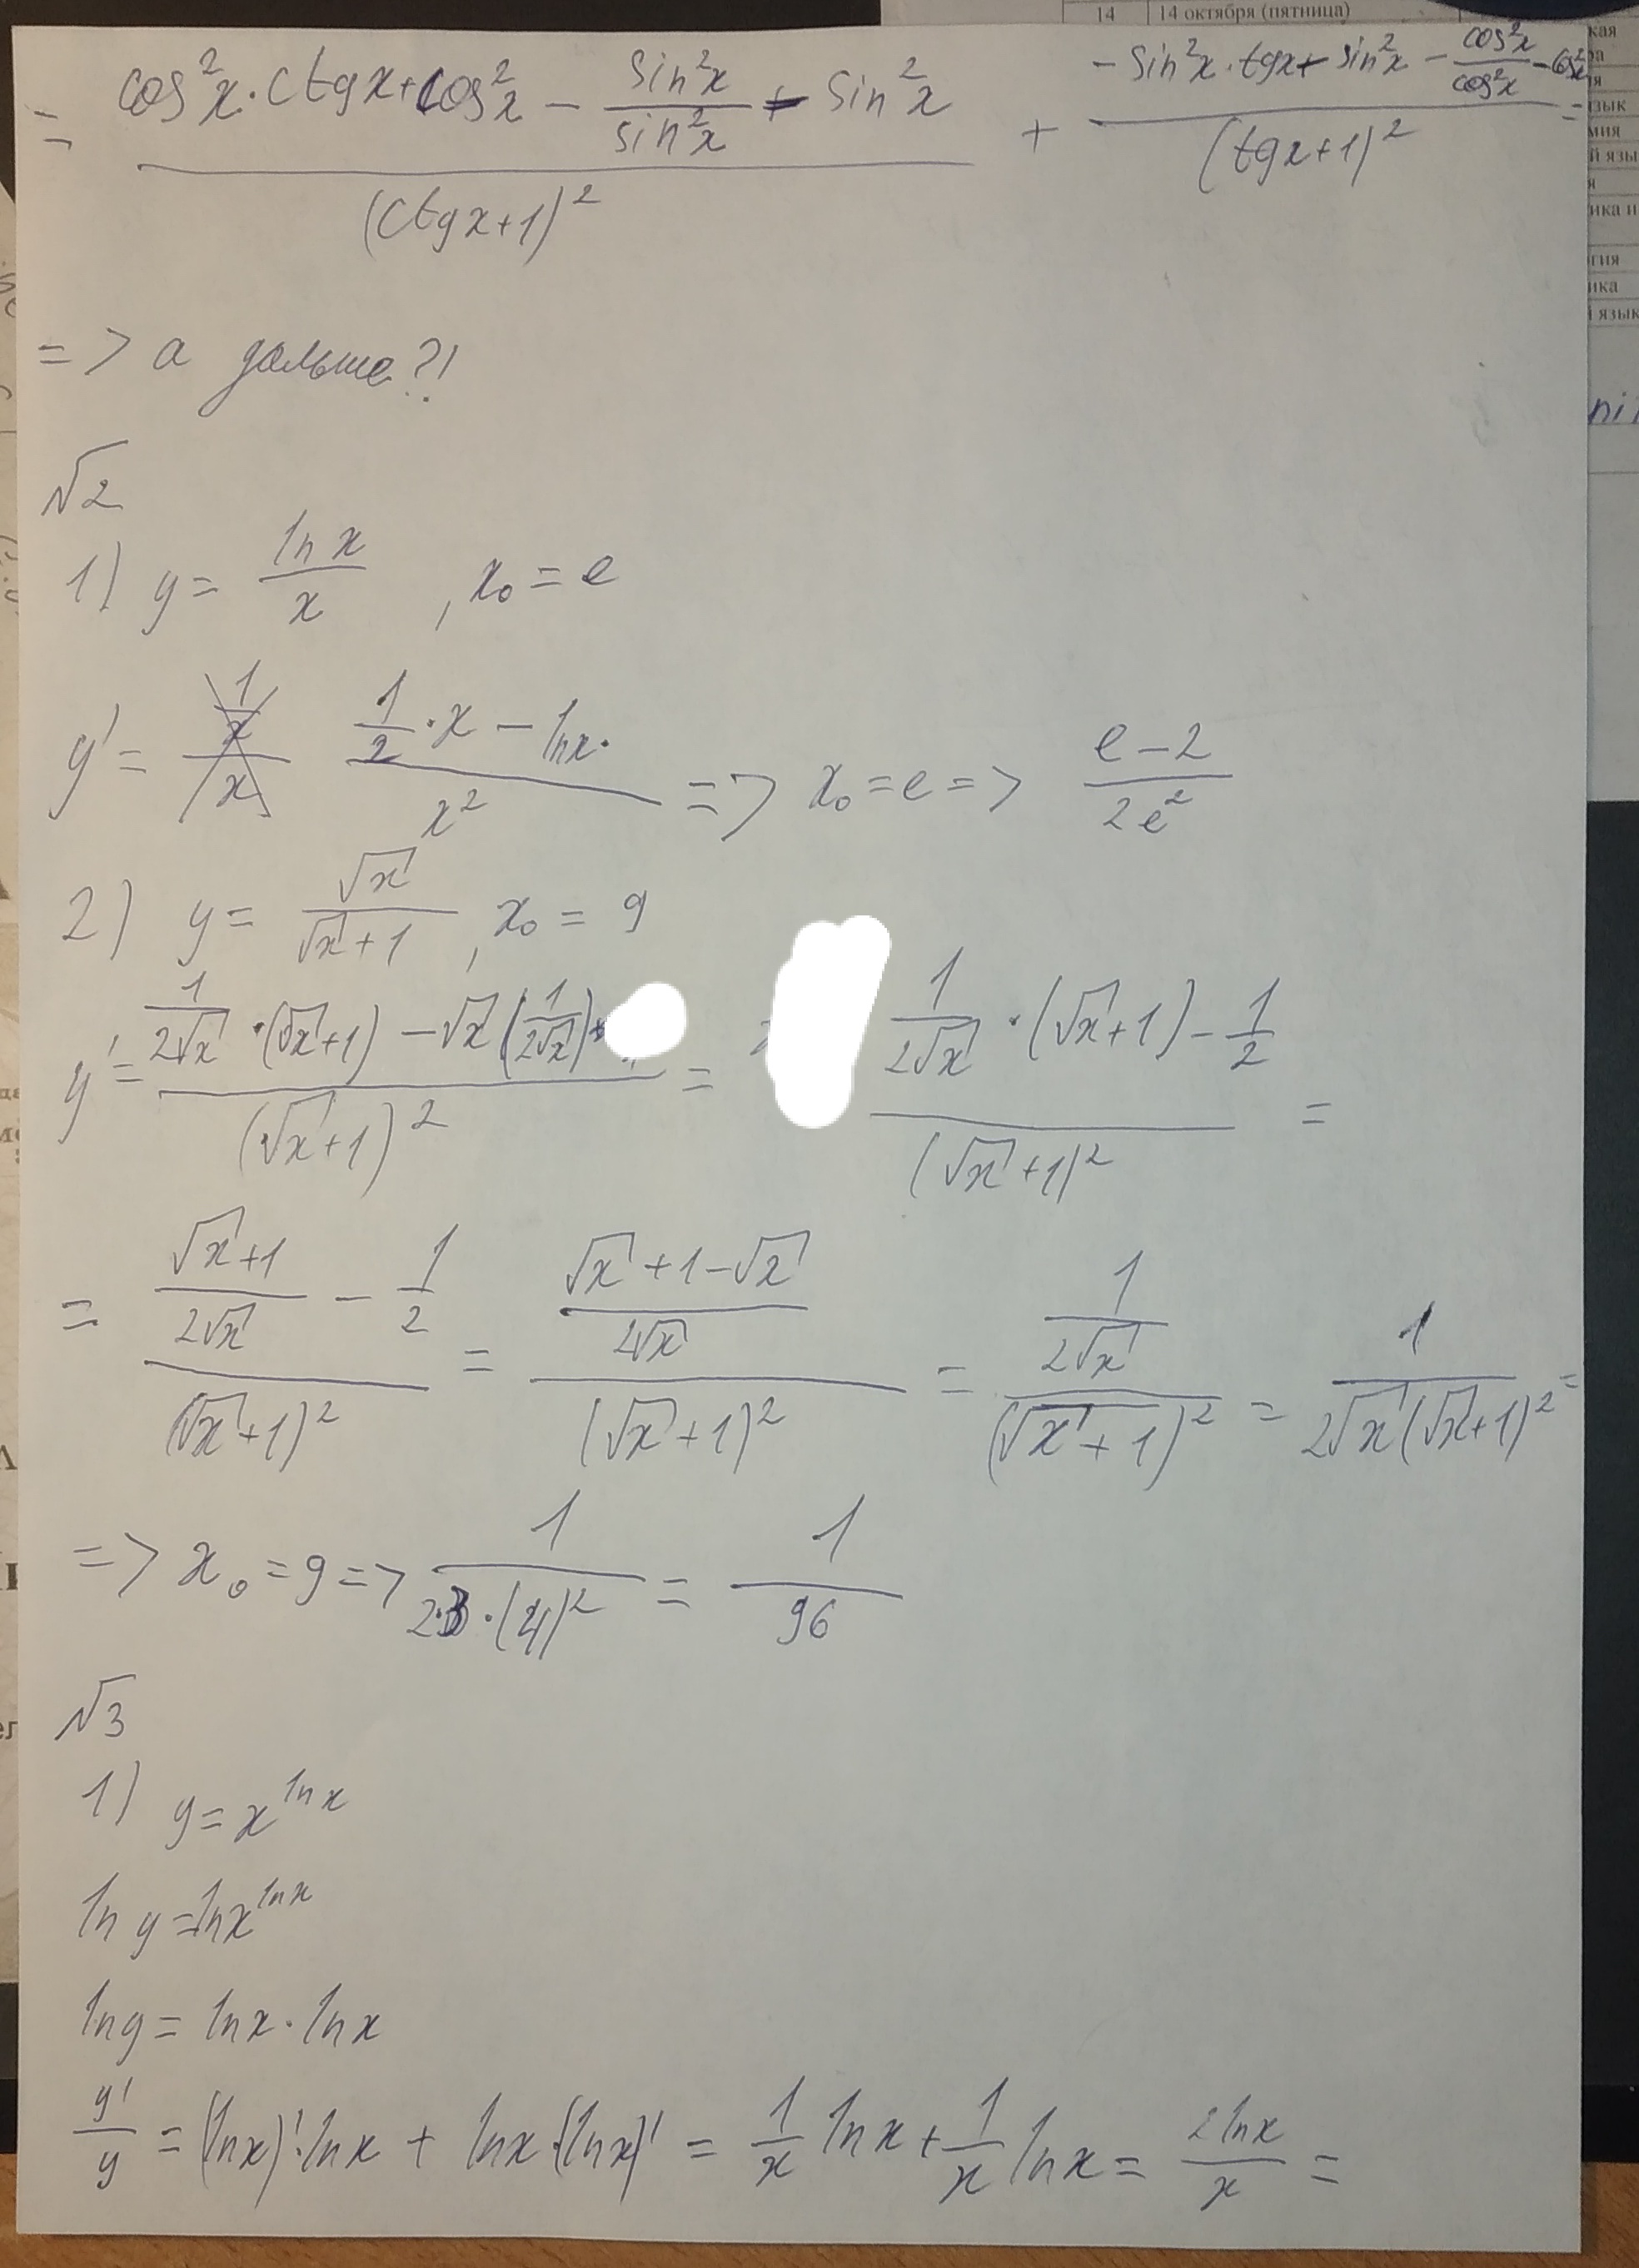 14 14 октября (пятница)
= (cos²x·ctgx+cos²x - sin²x/sin²x + sin²x)/(ctgx+1)² + (-sin²x·tgx+sin²x - cos²x/cos²x - cos²x)/(tgx+1)² =
=> а дальше?!
√2
1) y = ln x/x , x₀ = e
y' = (1/2·x - lnx·)/x² => x₀ = e => (e-2)/2e²
2) y = √x/(√x+1) , x₀ = 9
y' = (1/2√x·(√x+1) - √x(1/2√x))/(√x+1)² = (1/2√x·(√x+1) - 1/2)/(√x+1)² =
= ((√x+1)/2√x - 1/2)/(√x+1)² = ((√x+1-√x)/2√x)/(√x+1)² = (1/2√x)/(√x+1)² = 1/2√x(√x+1)² =
=> x₀ = 9 => 1/2·3·(4)² = 1/96
√3
1) y = x^ln x
ln y = lnx^lnx
ln y = lnx·lnx
y'/y = (lnx)'·lnx + lnx·(lnx)' = 1/x lnx + 1/x lnx = 2lnx/x =